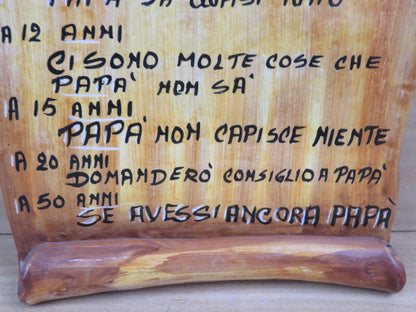 PAPA' SA QUASI TUTTO
A 12 ANNI
CI SONO MOLTE COSE CHE
PAPA' NON SA'
A 15 ANNI
PAPA' NON CAPISCE NIENTE
A 20 ANNI
DOMANDERÒ CONSIGLIO A PAPA'
A 50 ANNI
SE AVESSI ANCORA PAPÀ